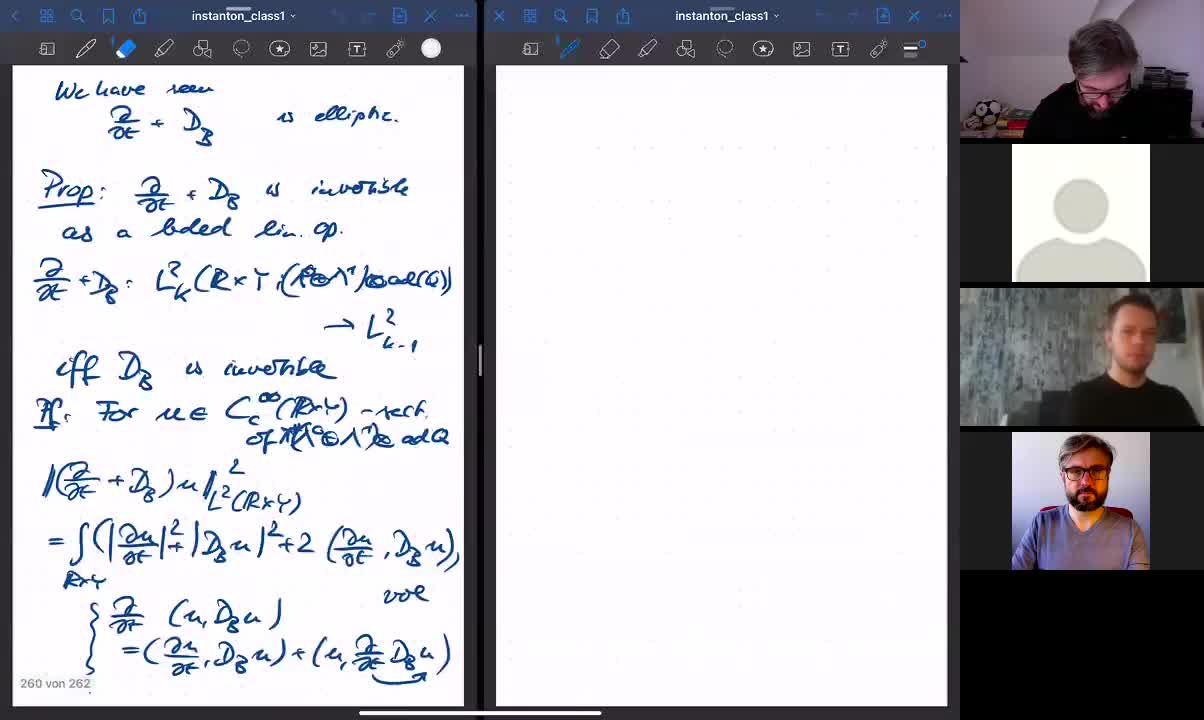 instanton_class1
instanton_class1
We have seen
∂/∂t + D_B is elliptic.
Prop: ∂/∂t + D_B is invertible
as a bded lin. op.
∂/∂t + D_B : L²_k (R×Y, (Λ⁰⊕Λ¹)⊗ad(Q))
→ L²_{k-1}
iff D_B is invertible
Pf: For u ∈ C_c^∞ (R×Y) - sect.
of (Λ⁰⊕Λ¹)⊗ad Q
‖(∂/∂t + D_B)u‖²_{L²(R×Y)}
= ∫_{R×Y} (|∂u/∂t|² + |D_B u|² + 2 (∂u/∂t, D_B u))
vol
{ ∂/∂t (u, D_B u)
= (∂u/∂t, D_B u) + (u, ∂/∂t D_B u)
260 von 262